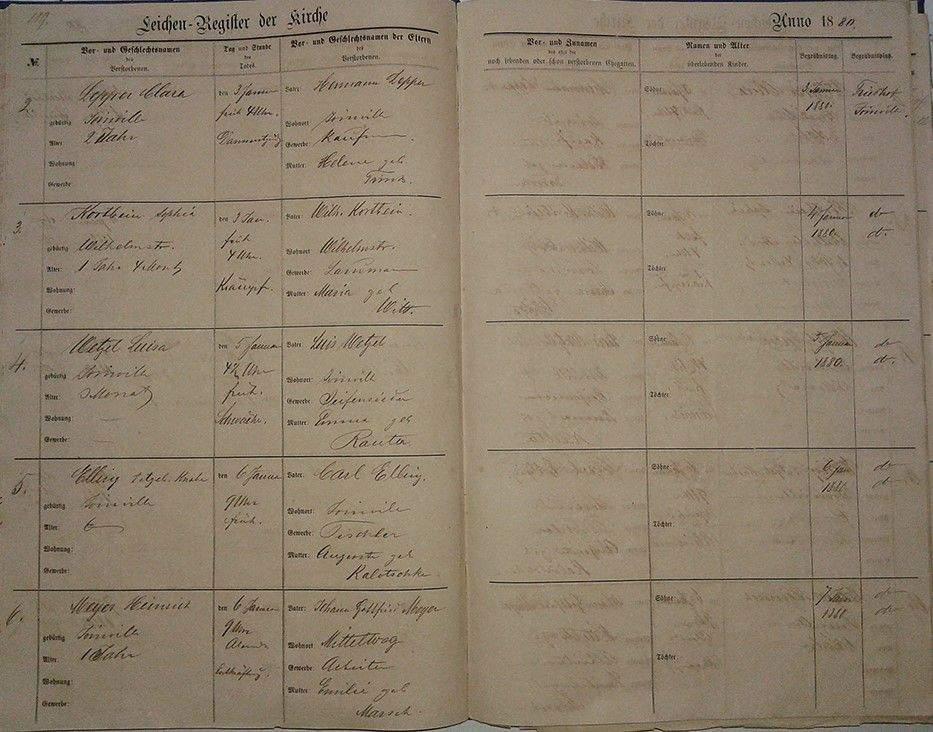 Leichen-Register der Kirche
Anno 1880.
№
Vor- und Geschlechtsnamen
des
Verstorbenen.
Tag und Stunde
des
Todes.
Vor- und Geschlechtsnamen der Eltern
des
Verstorbenen.
Vor- und Zunamen
des oder der
noch lebenden oder schon verstorbenen Ehegatten.
Namen und Alter
der
überlebenden Kinder.
Begräbnißtag.
Begräbnißplatz.
2.
Lepper Clara
gebürtig Joinville
Alter 2 Jahr
Wohnung
Gewerbe:
den 3 Januar
früh 4 Uhr.
Vater: Hermann Lepper
Wohnort Joinville
Gewerbe: Kaufm
Mutter: Helene geb
Söhne:
Töchter
3 Januar
1880.
Friedhof
Joinville.
3.
Korthein Sophia
gebürtig Wilhelmstr.
Alter: 1 Jahr 4 Monat
Wohnung:
Gewerbe:
den 3 Jan.
früh
4 Uhr.
Krämpf.
Vater: Wilh. Korthein.
Wohnort Wilhelmstr.
Gewerbe: Landmann
Mutter: Maria geb
Witt.
Söhne:
Töchter
4 Januar
1880.
do
do.
4.
Wetzel Luisa
gebürtig Joinville
Alter: Monat
Wohnung:
Gewerbe:
den 5 Januar
4½ Uhr
früh.
Schwäche.
Vater: Luis Wetzel
Wohnort: Joinville
Gewerbe: Seifensieder
Mutter: Emma geb
Rauter.
Söhne:
Töchter:
5 Januar
1880.
do
do.
5.
Elling todgeb. Knabe
gebürtig Joinville
Alter:
Wohnung:
Gewerbe:
den 6 Januar
9 Uhr
früh.
Vater: Carl Elling.
Wohnort: Joinville
Gewerbe: Tischler
Mutter: Auguste geb
Kalotschke.
Söhne:
Töchter:
6 Jan
1880.
do
do
6.
Meyer Heinrich
gebürtig Joinville
Alter: 1 Jahr
Wohnung:
Gewerbe:
den 6 Januar
9 Uhr
Abends
Entkräftung.
Vater: Johann Gottfried Meyer
Wohnort Mittelweg
Gewerbe: Arbeiter
Mutter: Emilie geb
Marsch.
Söhne:
Töchter:
7 Jan
1880
do
do.